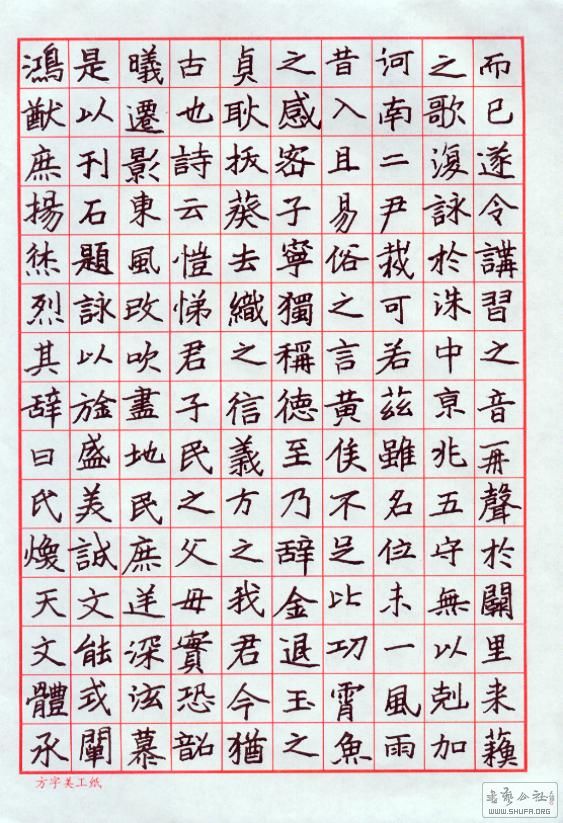 而已遂令講習之音再聲於闕里来蘓
之歌復詠於洙中京兆五守無以剋加
河南二尹裁可若兹雖名位未一風雨
昔入且易俗之言黄侯不足比功霄魚
之感密子寧獨稱德至乃辞金退玉之
貞耿拔葵去織之信義方之我君今猶
古也詩云愷悌君子民之父母實恐韶
曦遷影東風改吹盡地民庶逆深泫慕
是以刊石題詠以旌盛美誠文能式闡
鴻猷庶揚烋烈其辞曰氏煥天文體承
方字美工纸
书法公社
WWW.SHUFA.ORG